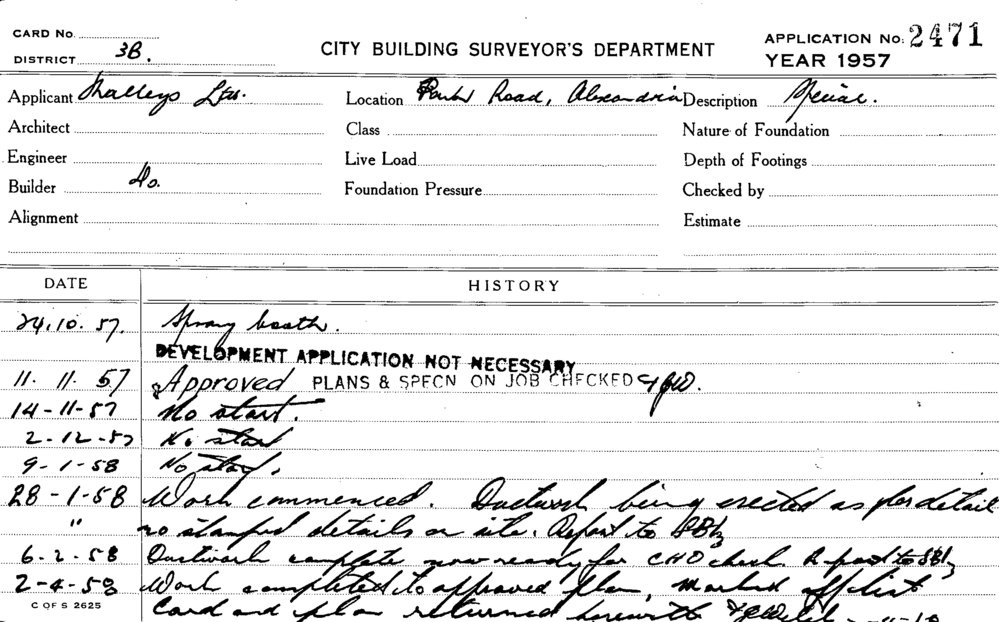 CARD No.
DISTRICT 3B.
CITY BUILDING SURVEYOR'S DEPARTMENT
APPLICATION No. 2471
YEAR 1957
Applicant Malleys Ltd. Location Road, Alexandria Description Special.
Architect Class Nature of Foundation
Engineer Live Load Depth of Footings
Builder Do. Foundation Pressure Checked by
Alignment Estimate
DATE HISTORY
24.10.57. Spray booth.
DEVELOPMENT APPLICATION NOT NECESSARY
11.11.57 Approved PLANS & SPECN ON JOB CHECKED
14-11-57 No start.
2-12-57 No start
9-1-58 No start.
28-1-58 Work commenced. Ductwork being erected as per detail
" no stamped details on site. Report to
6-2-58 Ductwork complete now ready for CHO check. Report to
2-4-58 Work completed to approved plan, marked off list
C OF S 2625
Card and plan returned herewith